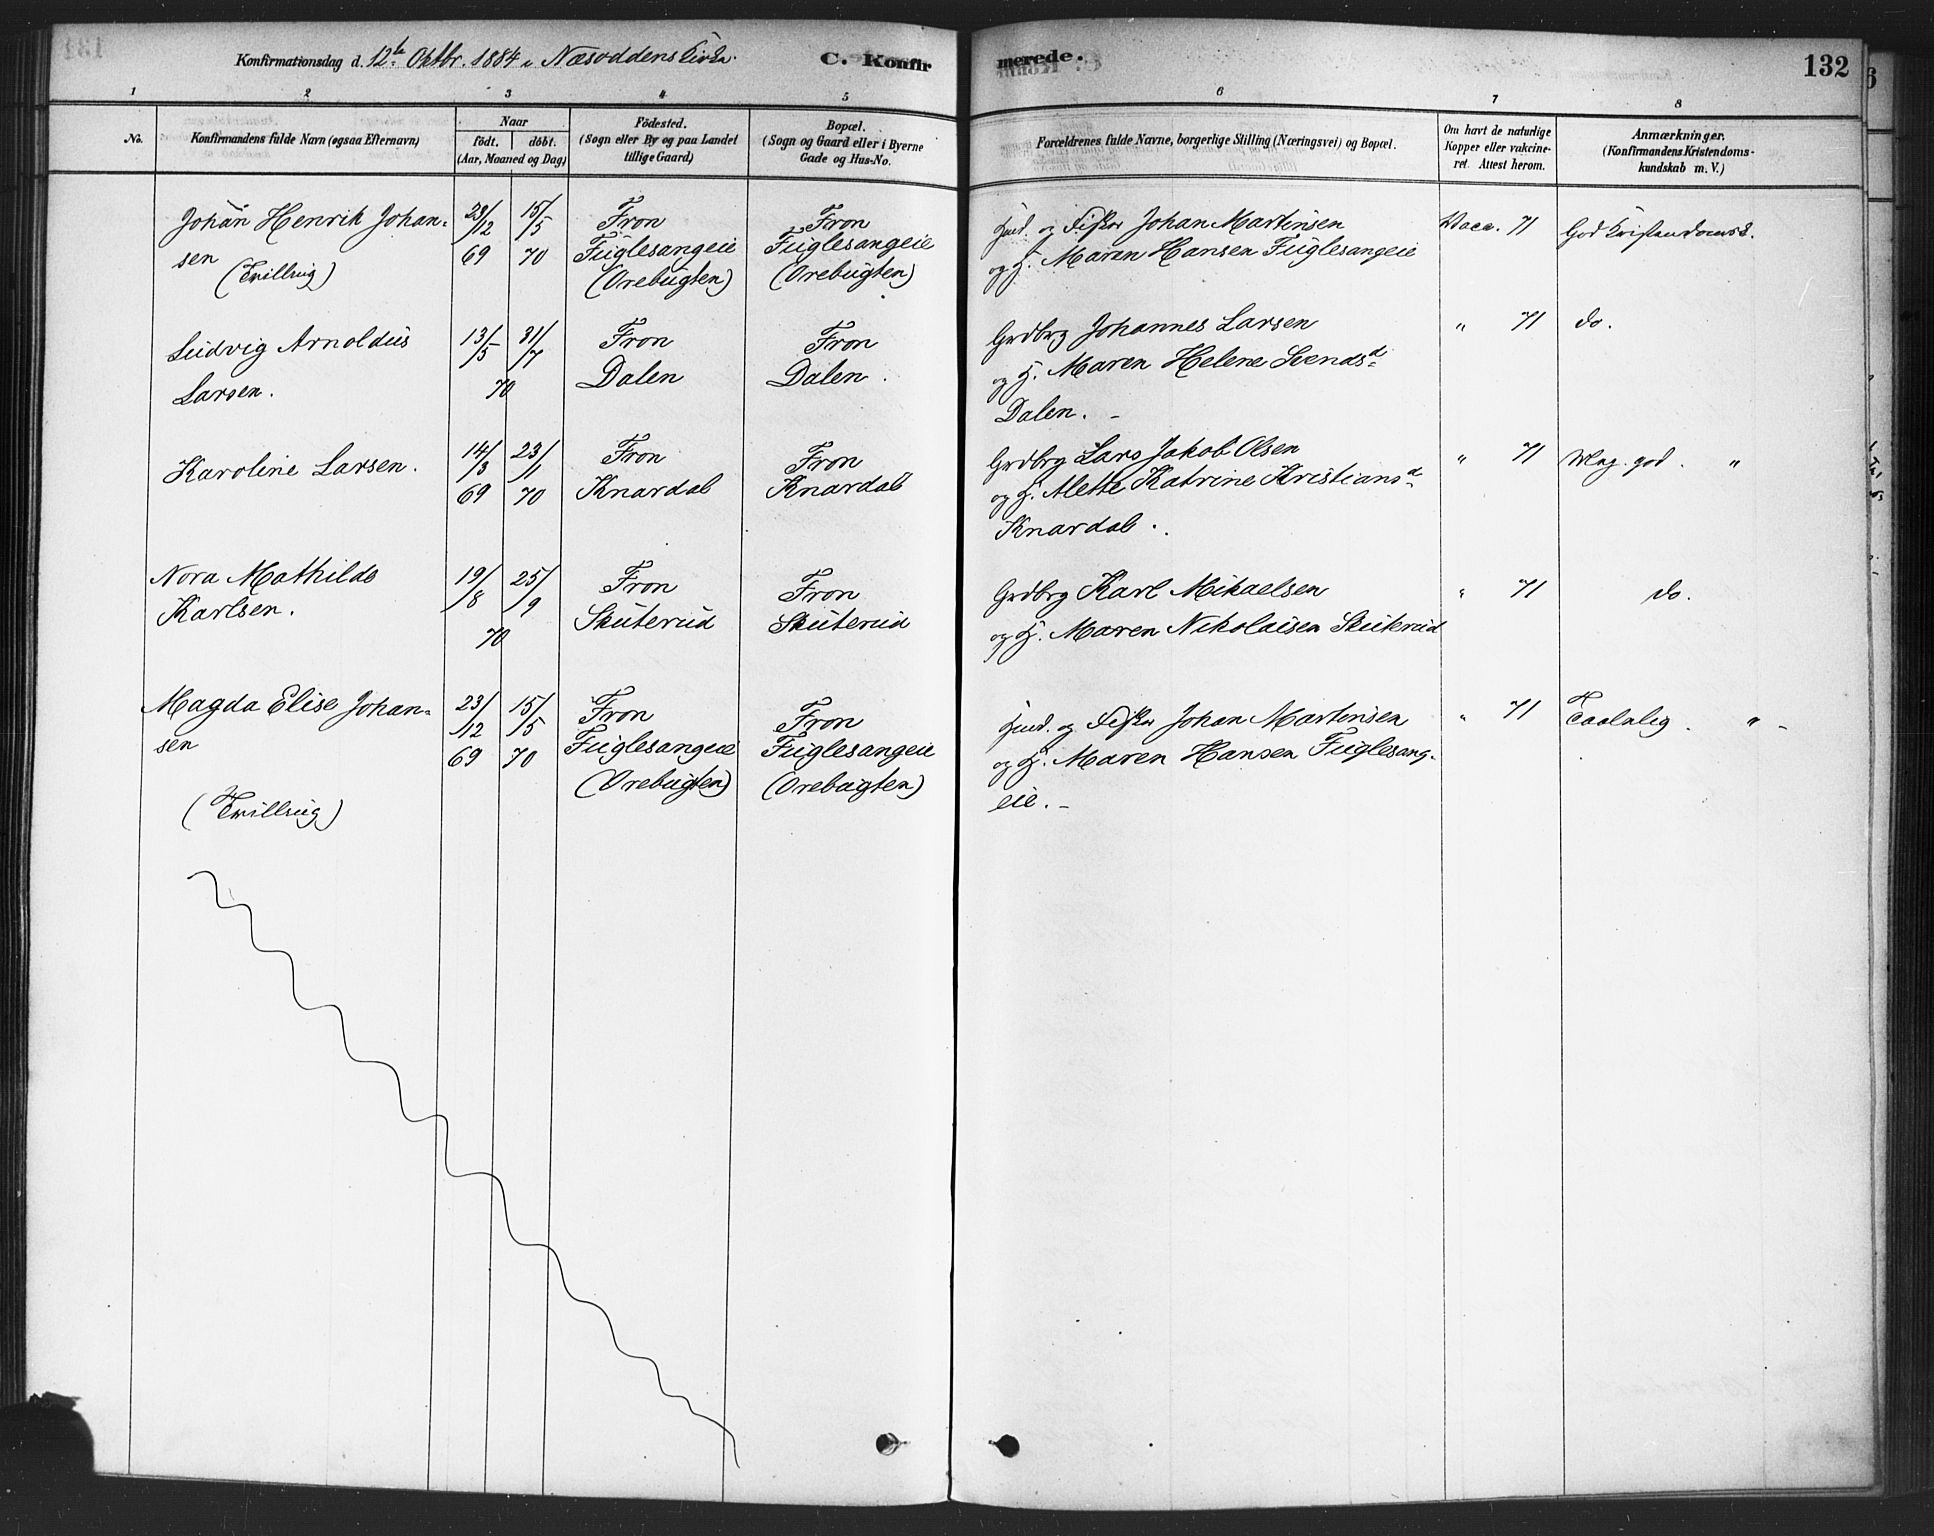 Konfirmationsdag d. 12te Oktbr. 1884 i Næsoddens Kirke. C. Konfirmerede. 132
1 2 3 4 5 6 7 8
No. Konfirmandens fulde Navn (ogsaa Efternavn) Naar födt. döbt. (Aar, Maaned og Dag) Födested. (Sogn eller By og paa Landet tillige Gaard) Bopæl. (Sogn og Gaard eller i Byerne Gade og Hus-No. Forældrenes fulde Navne, borgerlige Stilling (Næringsvei) og Bopæl. Om havt de naturlige Kopper eller vakcineret. Attest herom. Anmærkninger. (Konfirmandens Kristendomskundskab m. V.)
Johan Henrik Johan- 23/12 15/5 Fron Fron Husd. og Fisker Johan Martinsen Vacc. 71 God Kristendomsk.
sen 69 70 Fuglesangeie Fuglesangeie og H. Maren Hansen Fuglesangeie
(Tvilling) (Orebugten) (Orebugten)
Ludvig Arnoldus 13/5 31/7 Fron Fron Grdbrg Johannes Larsen " 71 do.
Larsen. 70 Dalen Dalen. og H. Maren Helene Svendsd.
Dalen. -
Karoline Larsen. 14/3 23/1 Fron Fron Grdbrg Lars Jakob Olsen " 71 Meg. god. "
69 70 Knardal Knardal og H. Alette Katrine Kristiansd.
Knardal.
Nora Mathilde 19/8 25/9 Fron Fron Grdbrg Karl Mikaelsen " 71 do.
Karlsen. 70 Skuterud Skuterud og H. Maren Nikolaisen Skuterud
Magda Elise Johan- 23/12 15/5 Fron Fron Husd. og Fisker Johan Martinsen " 71 Taalelig. " -
sen 69 70 Fuglesangeie Fuglesangeie og H. Maren Hansen Fuglesang-
(Orebugten) (Orebugten) eie. -
(Tvilling)